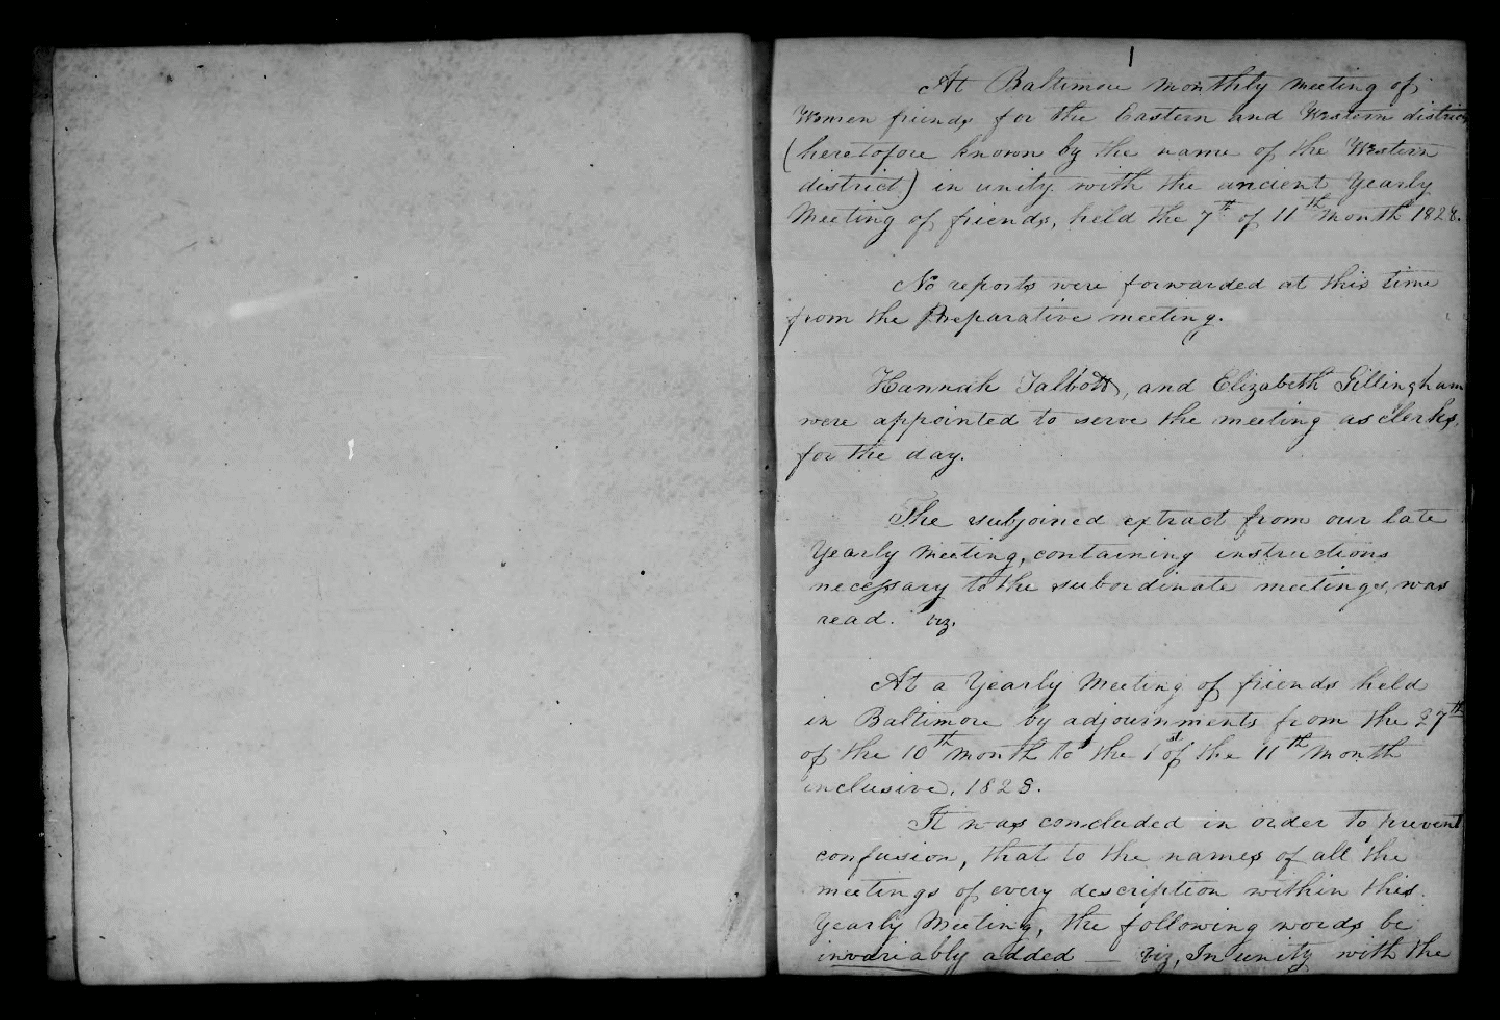 1
At Baltimore Monthly Meeting of
Women friends for the Eastern and Western district
(heretofore known by the name of the Western
district) in unity with the ancient Yearly
Meeting of friends, held the 7th of 11th month 1828.
No reports were forwarded at this time
from the Preparative meeting.
Hannah Talbott, and Elizabeth Gillingham
were appointed to serve the meeting as clerks,
for the day.
The subjoined extract from our late
Yearly Meeting, containing instructions
necessary to the subordinate meetings, was
read. viz.
At a Yearly Meeting of friends held
in Baltimore by adjournments from the 27th
of the 10th month to the 1st of the 11th month
inclusive, 1828.
It was concluded in order to prevent
confusion, that to the names of all the
meetings of every description within this
Yearly Meeting, the following words be
invariably added — viz, In unity with the